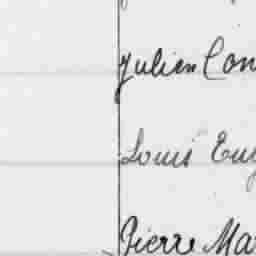 Julien Con
Louis Eug
Pierre Mar